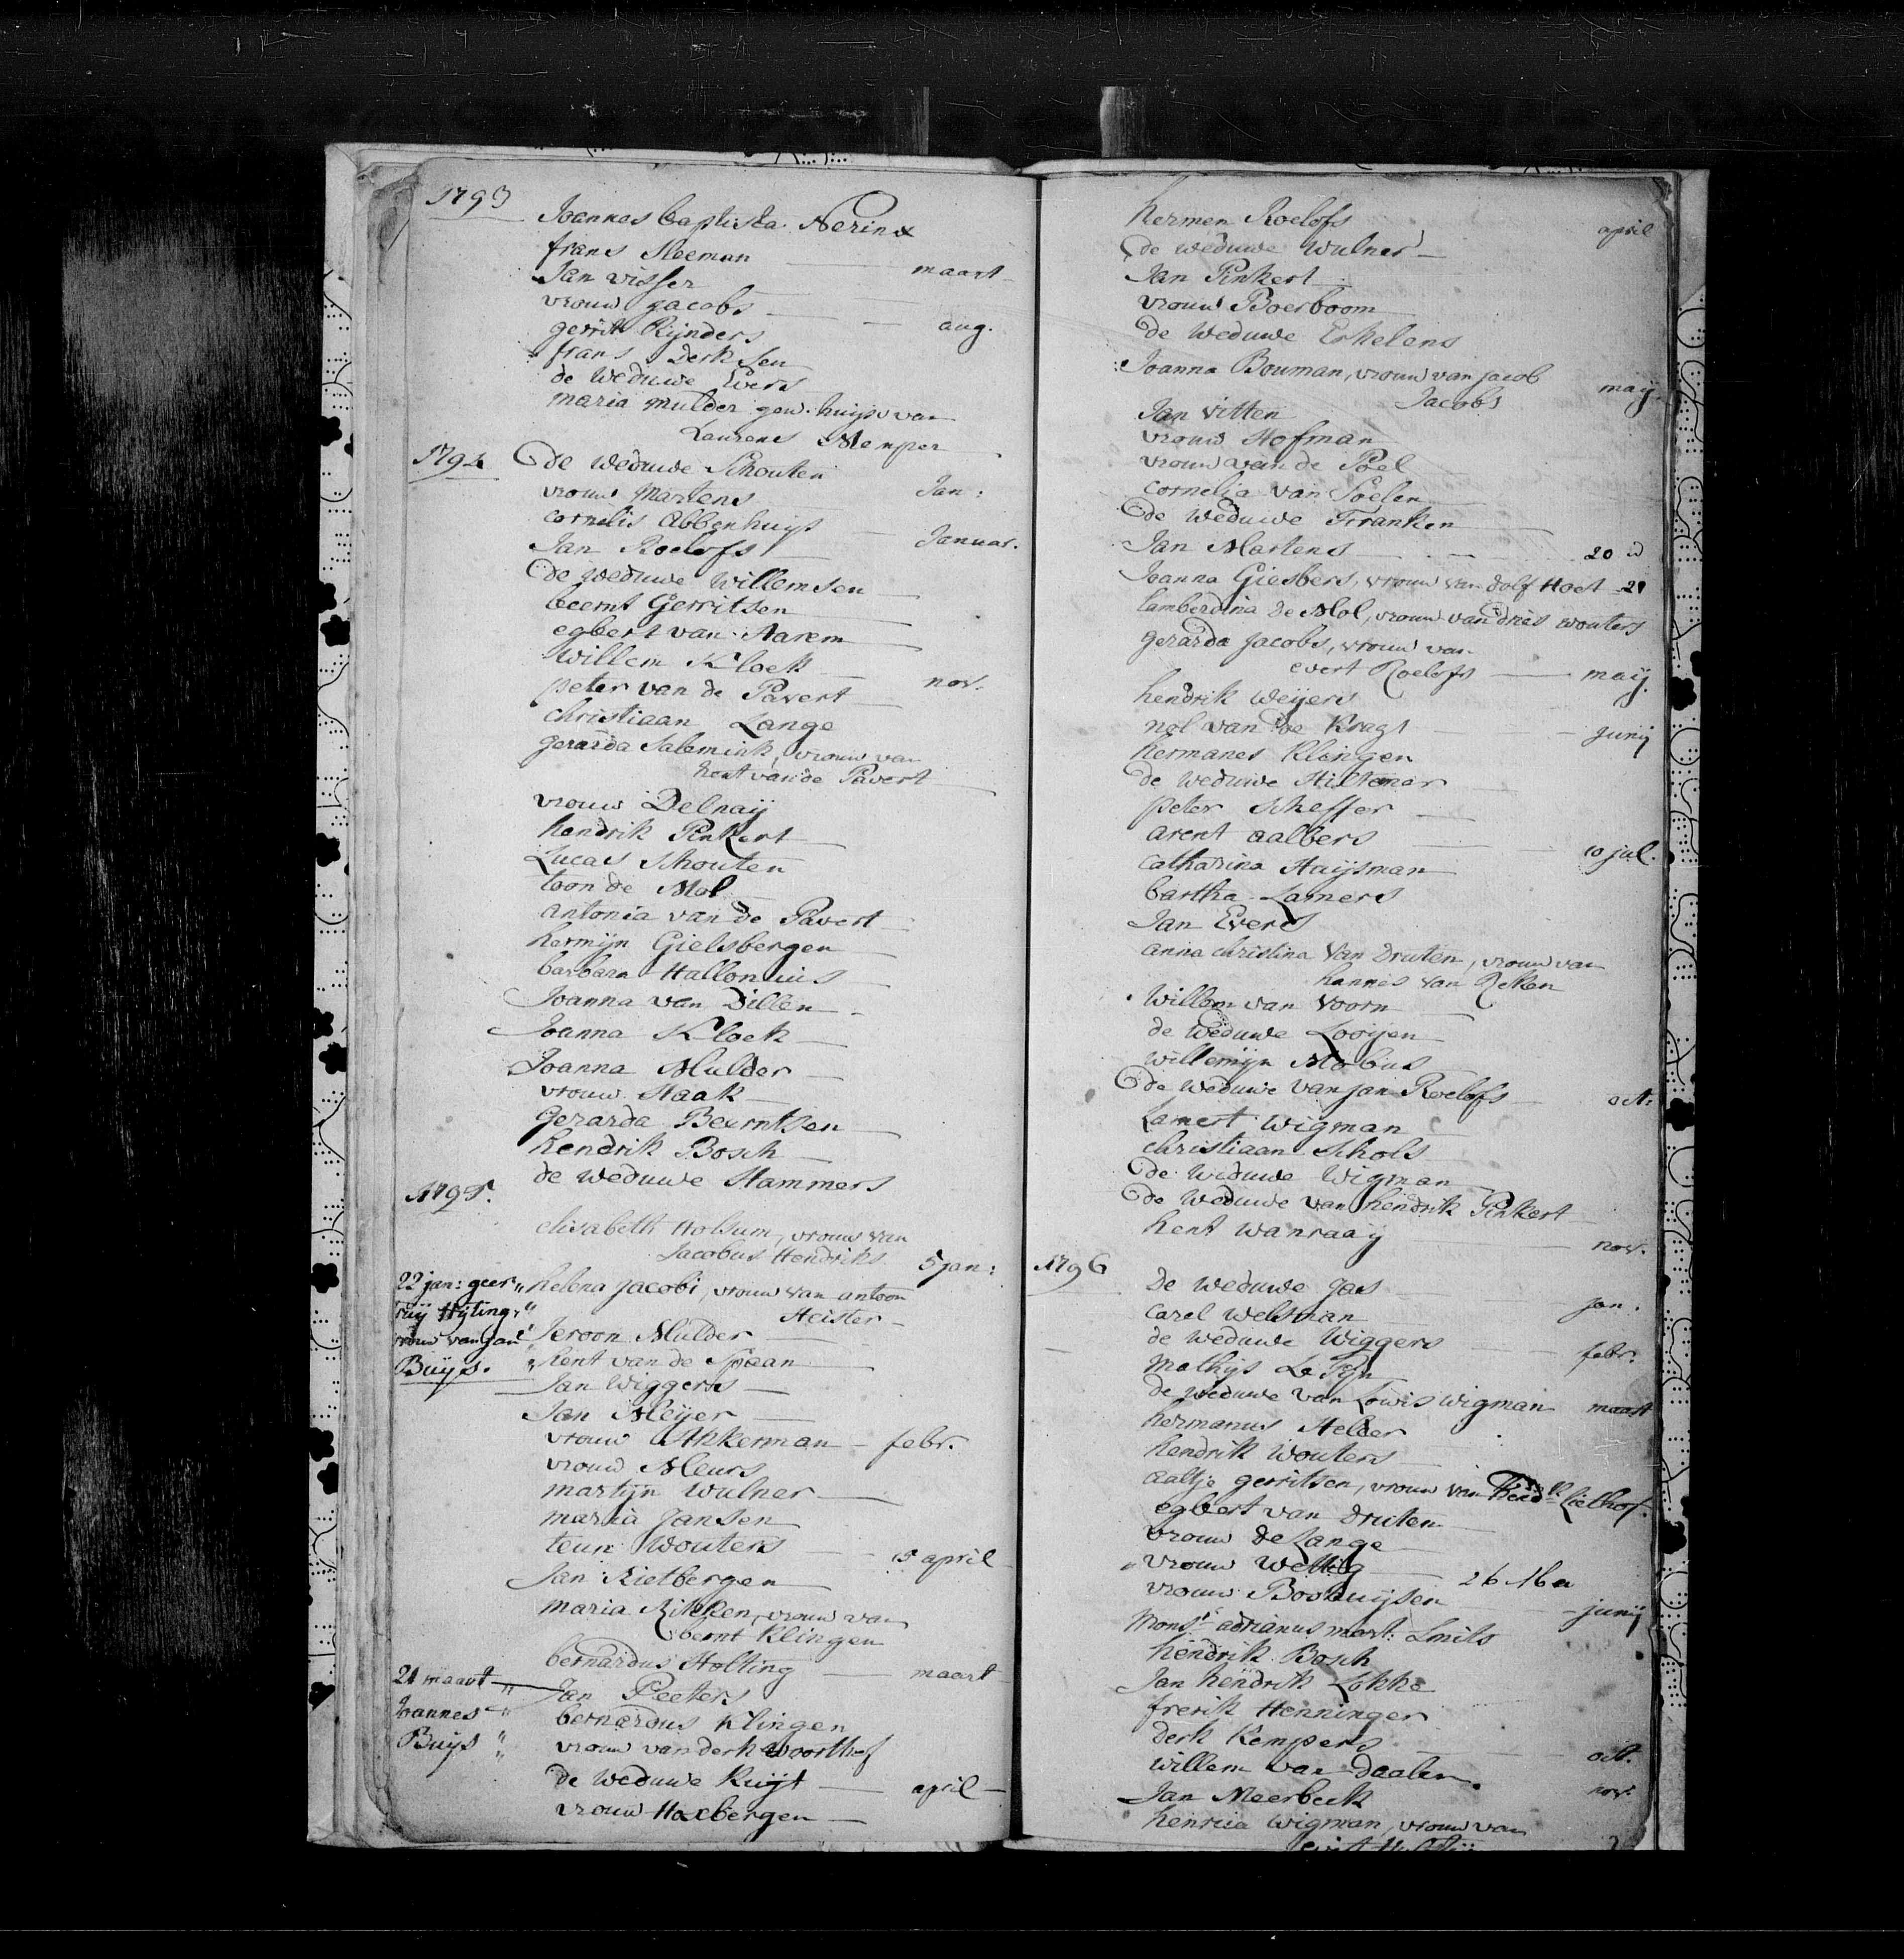 1793
Joannes baptista Nerinx
frans Sleeman — maart
Jan visser
vrouw jacobs — aug.
gerrit Rijnders
frans Derksen
de weduwe Evers
maria mulder gew. huijsv van
Laurens Memper
1794 de weduwe Schouten
vrouw Martens Jan:
cornelis Abbenhuijs
Jan Roelofs — Januar.
de weduwe Willemsen
beernt Gerritsen
egbert van Aarem
willem Kloek
peter van de Pavert — nov.
christiaan Lange
gerarda Salemink, vrouw van
hent van de Pavert
vrouw Delnaij
hendrik Pinkert
Lucas Schouten
toon de Mol
antonia van de Pavert
harmijn Gielsbergen
barbara Hallonuis
Joanna van Dillen
Joanna Kloek
Joanna Mulder
vrouw Haak
Gerarda Beerntsen
hendrik Bosch
de weduwe Hammers
1795.
elisabeth Holsum, vrouw van
Jacobus Hendriks 5 jan:
22 jan: geer „ helena jacobi, vrouw van antoon
ruij Hijting, „ Heister
vrouw van jan „ Jeroon Mulder
Buijs. „ hent van de Spaan
Jan Wiggers
Jan Meijer
vrouw Akkerman — febr.
vrouw Meurs
martijn wulner
maria Jansen
teun Wouters — 15 april
Jan Rietbergen
maria Rikken, vrouw van
bernt Klingen
bernardus Holting — maart
21 maart — „ Jan Peeters
Joannes „ bernardus Klingen
Buijs „ vrouw van derk woorthof
de weduwe Kuijt — april
vrouw Haxbergen
hermen Roelofs april
de weduwe Wulner
Jan Pinkert
vrouw Boerboom
de weduwe Erkelens
Joanna Bouman, vrouw van jacob
Jacobs maij.
Jan Vitten
vrouw Hofman
vrouw van de Poel
cornelia van Soelen
de weduwe Franken
Jan Martens — 20 d
Joanna Giesbers, vrouw van dolf Hoet 21
lamberdina de Mol, vrouw van dries wouters
gerarda jacobs, vrouw van
evert Roelofs — maij.
hendrik Weijers
nol van de Kragt — junij
hermanes Klingen
de weduwe Hiltemar
peter Scheffer
arent aalbers
catharina Huijsman 10 jul.
bartha Lamers
Jan Evers
anna christina van Druten, vrouw van
hannes van Relken
willem van voorn
de weduwe Looijen
willemijn Mobius
de weduwe van jan Roelofs — oct:
Lamert wigman
christiaan Schols
de weduwe Wigman
de weduwe van hendrik Pinkert
hent wanraaij — nov.
1796
De weduwe Jas
carel Welsman — jan.
de weduwe Wiggers — febr.
Mathijs Le Fijn
de weduwe van Lowis wigman maart
hermanus Helder
hendrik wouters
aaltje gerritsen, vrouw van Lielhof.
egbert van druten
vrouw de Lange
vrouw Welling
vrouw Boshuijsen — 26
junij
Monsr. adrianus mart: Smits
hendrik Bosch
Jan hendrik Lokke
frerik Henninger
derk Kempers
willem van daalen. oct.
Jan Meerbeek nov.
henrica wigman, vrouw van